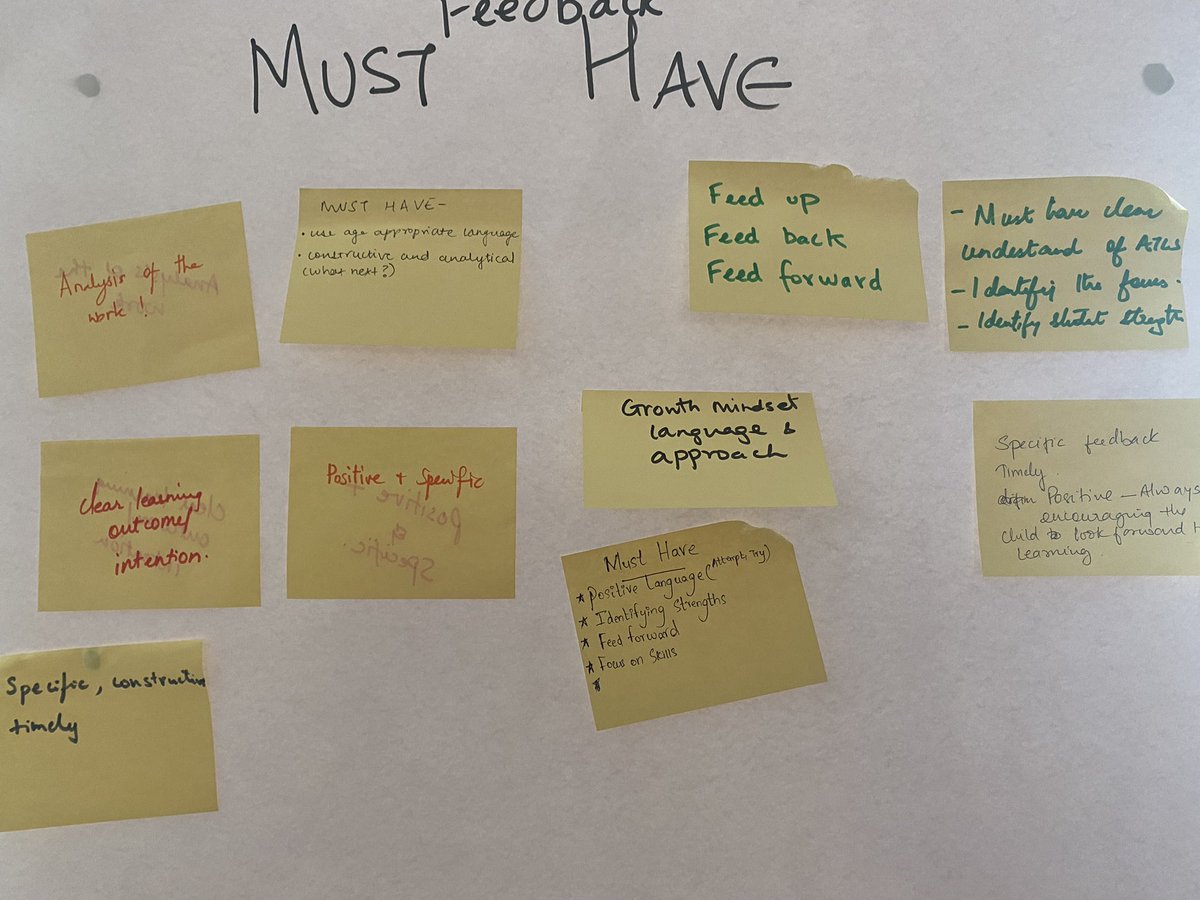 Feedback
MUST HAVE
Analysis of the
work!
MUST HAVE-
• use age appropriate language
• constructive and analytical
(what next?)
Feed up
Feed back
Feed forward
- Must have clear
understand of ATLs
- Identify the focus.
- Identify student strength
clear learning
outcome/
intention.
Positive + Specific
Growth mindset
language &
approach
Specific feedback
Timely.
Positive - Always
encouraging the
child to look forward
learning.
Must Have
* Positive language (Attempt, Try)
* Identifying Strengths
* Feed forward
* Focus on Skills
*
Specific, constructive
timely